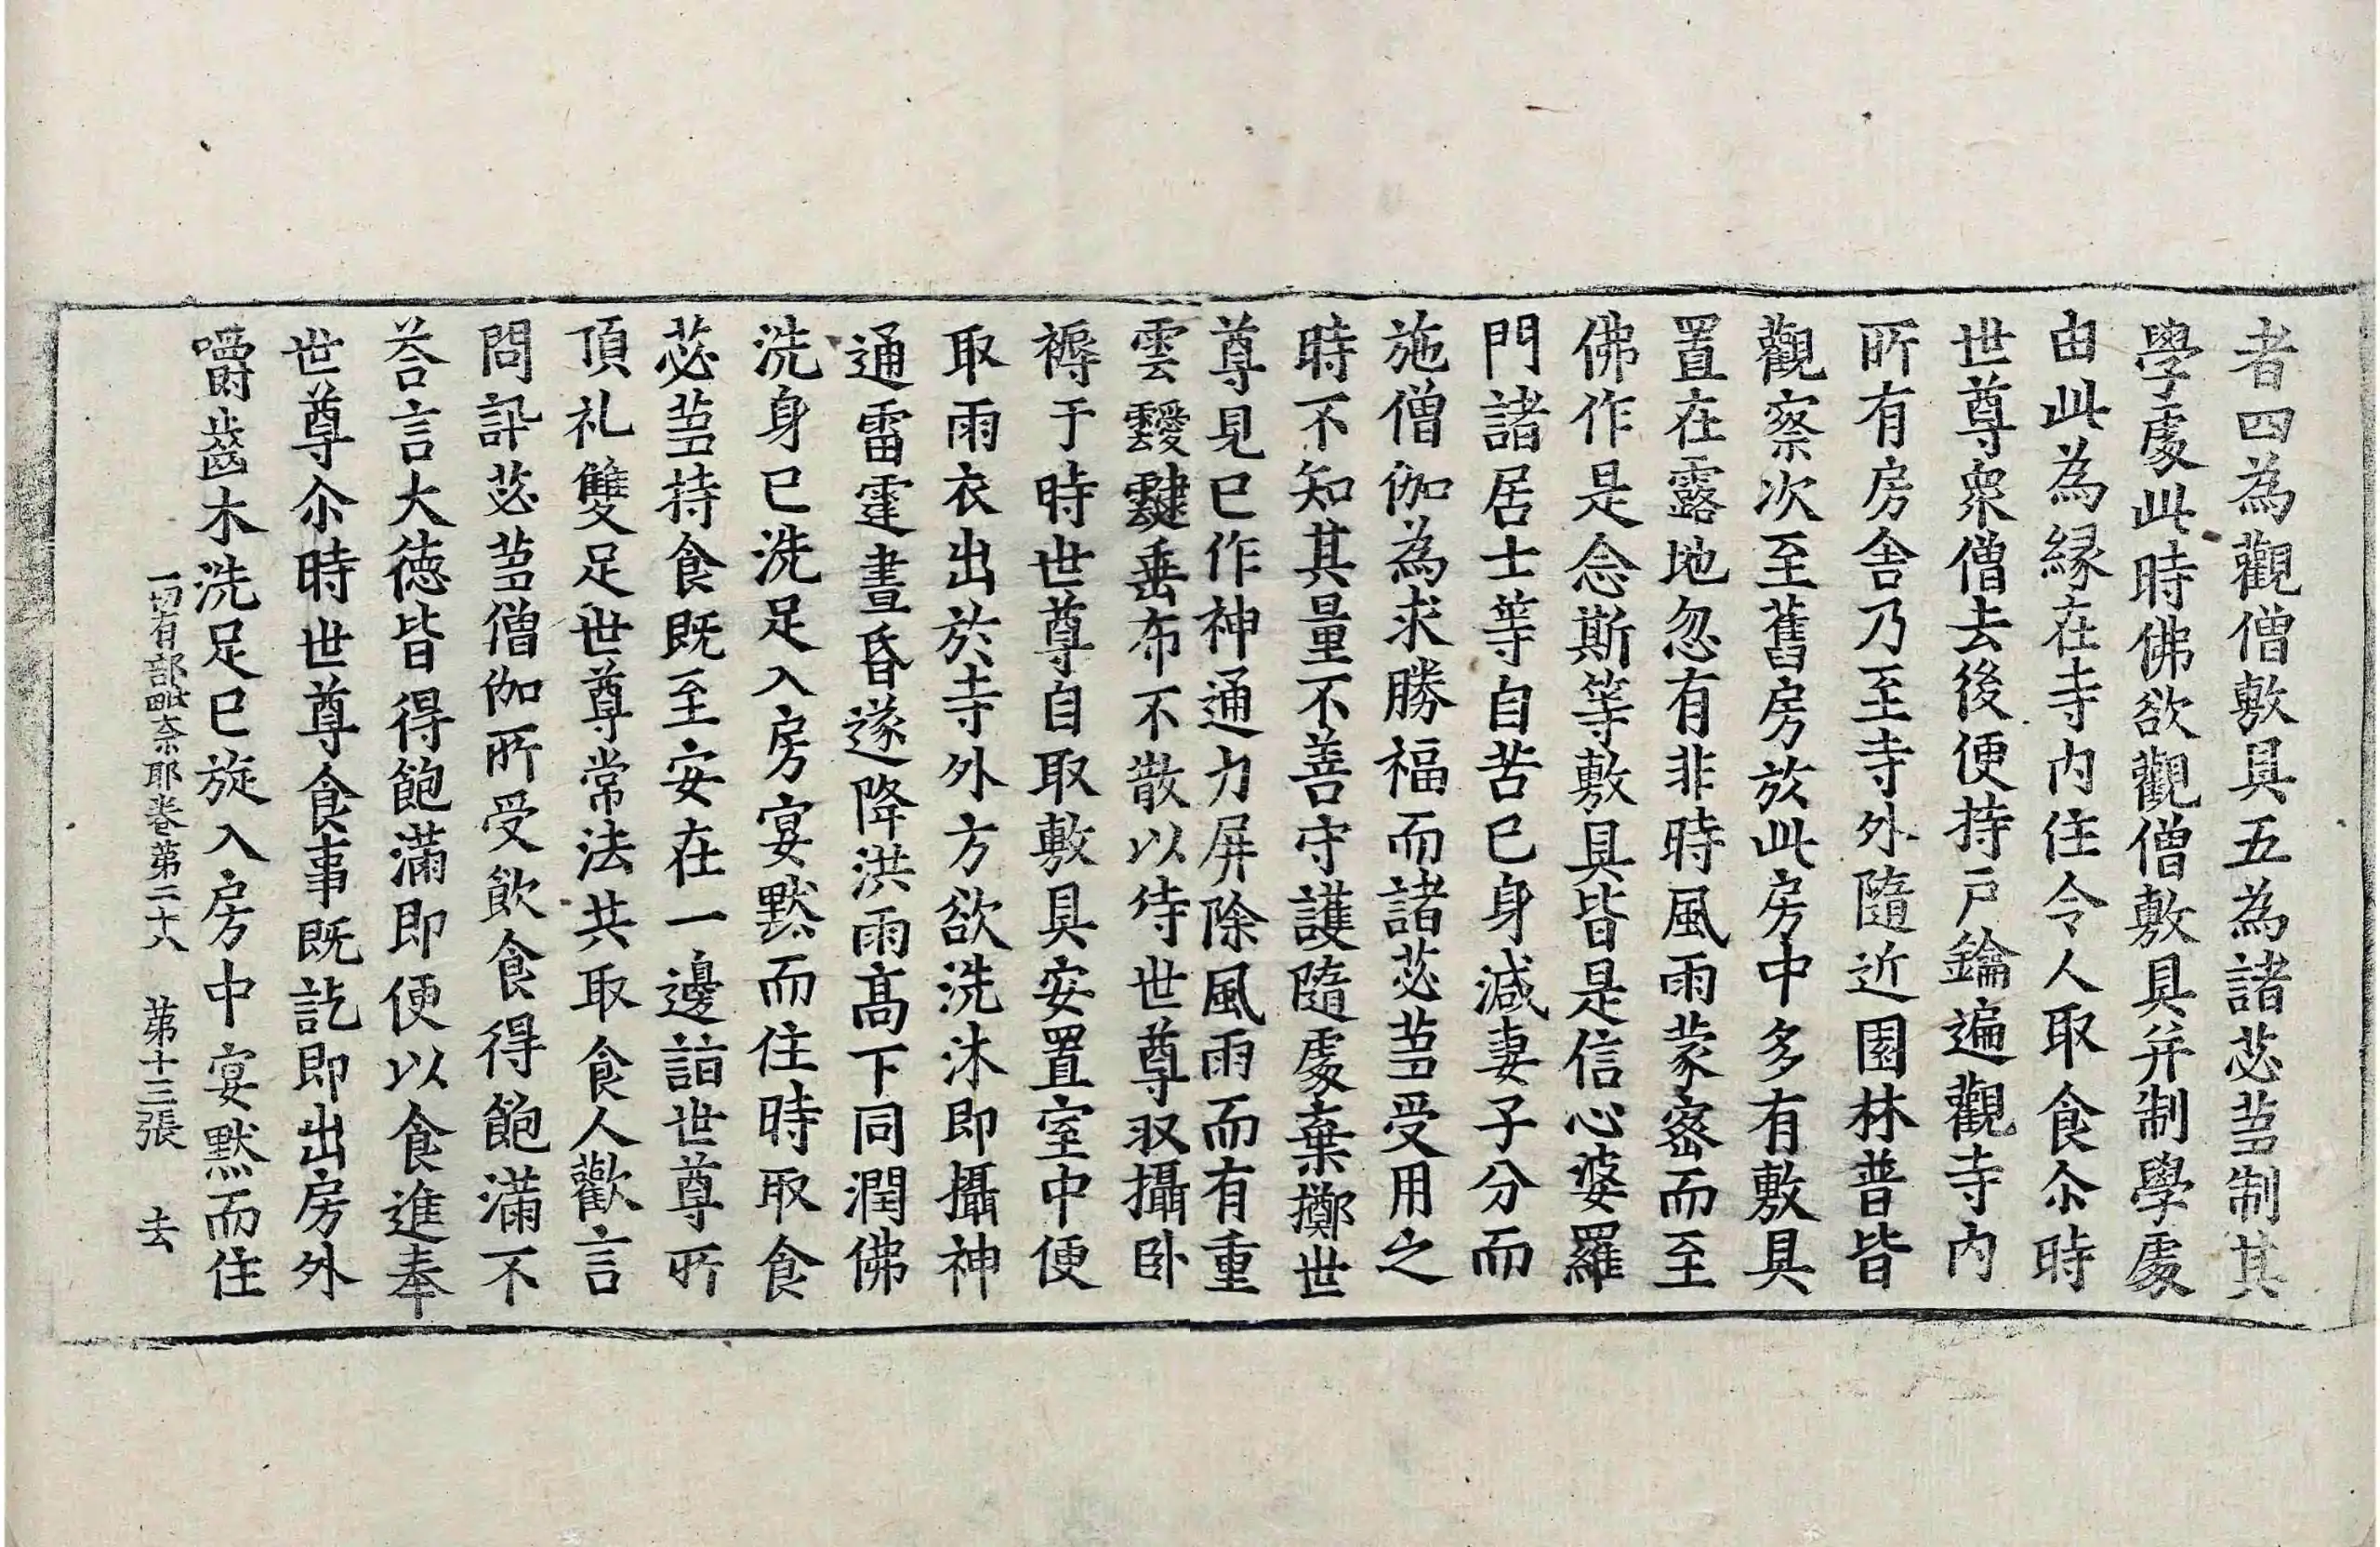 者四為觀僧敷具五為諸苾芻制其
學處此時佛欲觀僧敷具并制學處
由此為緣在寺內住令人取食尒時
世尊衆僧去後便持戶鑰遍觀寺內
所有房舍乃至寺外隨近園林普皆
觀察次至舊房於此房中多有敷具
置在露地忽有非時風雨蒙密而至
佛作是念斯等敷具皆是信心婆羅
門諸居士等自苦己身減妻子分而
施僧伽為求勝福而諸苾芻受用之
時不知其量不善守護隨處棄擲世
尊見已作神通力屏除風雨而有重
雲靉靆垂布不散以待世尊収攝卧
褥于時世尊自取敷具安置室中便
取雨衣出於寺外方欲洗沐即攝神
通雷霆晝昏遂降洪雨髙下同潤佛
洗身已洗足入房宴默而住時取食
苾芻持食既至安在一邊詣世尊所
頂礼雙足世尊常法共取食人歡言
問訊苾芻僧伽所受飲食得飽滿不
荅言大德皆得飽滿即便以食進奉
世尊尒時世尊食事既訖即出房外
嚼齒木洗足已旋入房中宴默而住
一切有部毗奈耶卷第二十八 第十三張 去